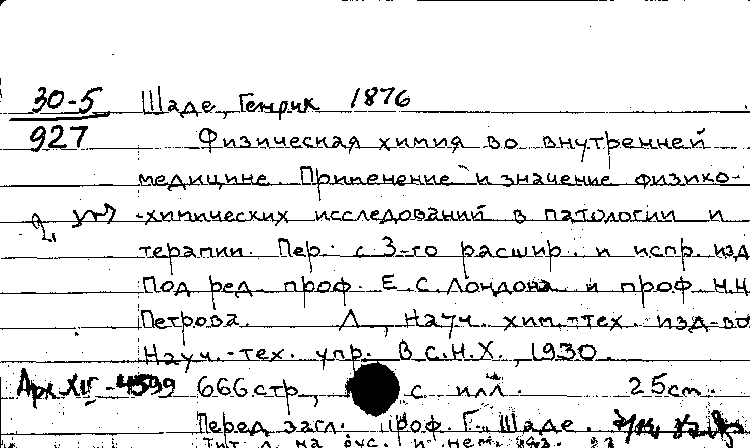 30-5 Шаде, Генрик 1876
927 Физическая химия во внутренней
медицине. Применение и значение физико-
-химических исследований в патологии и
терапии. Пер. с 3-го расшир. и испр. изд
Под ред. проф. Е.С. Лондона и проф Н.Н.
Петрова. Л., Науч. хим.-тех. изд-во
Науч.-тех. упр. В.С.Н.Х., 1930.
Арх XIV-4599 666 стр, с илл. 25 cm.
Перед загл. проф. Г. Шаде.
Тит л. на рус. и нем. яз.